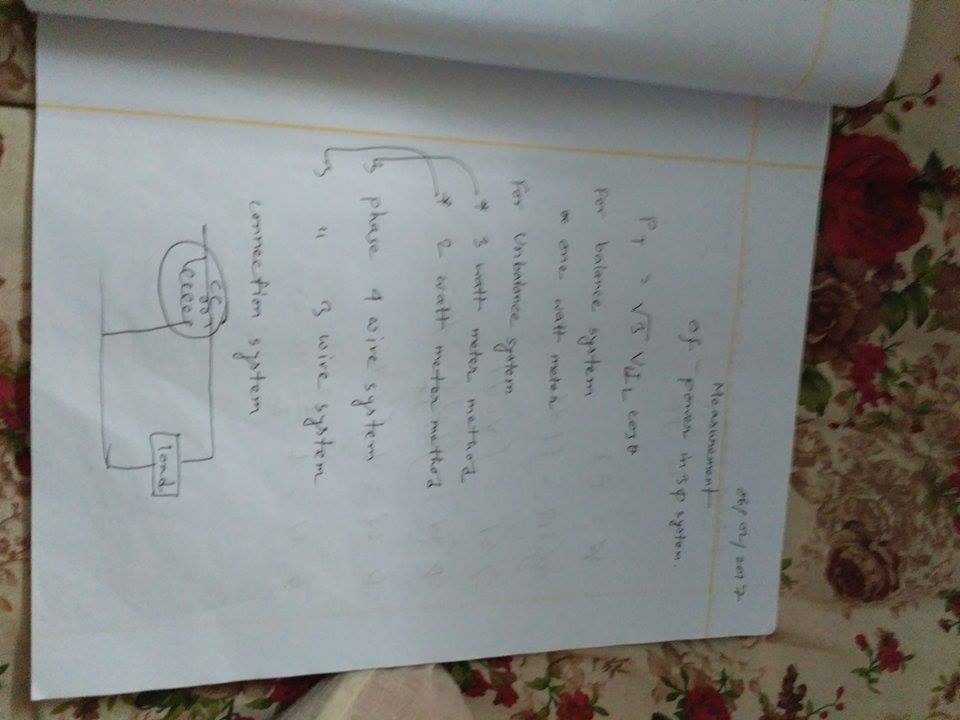 06/02/2017
Measurement
of power in 3φ system.
P_T = √3 V_L I_L cosθ
For balance system
* one watt meter
For Unbalance system
* 3 watt meter method
* 2 watt meter method
3 phase 4 wire system
3 " 3 wire system
connection system
CC
load